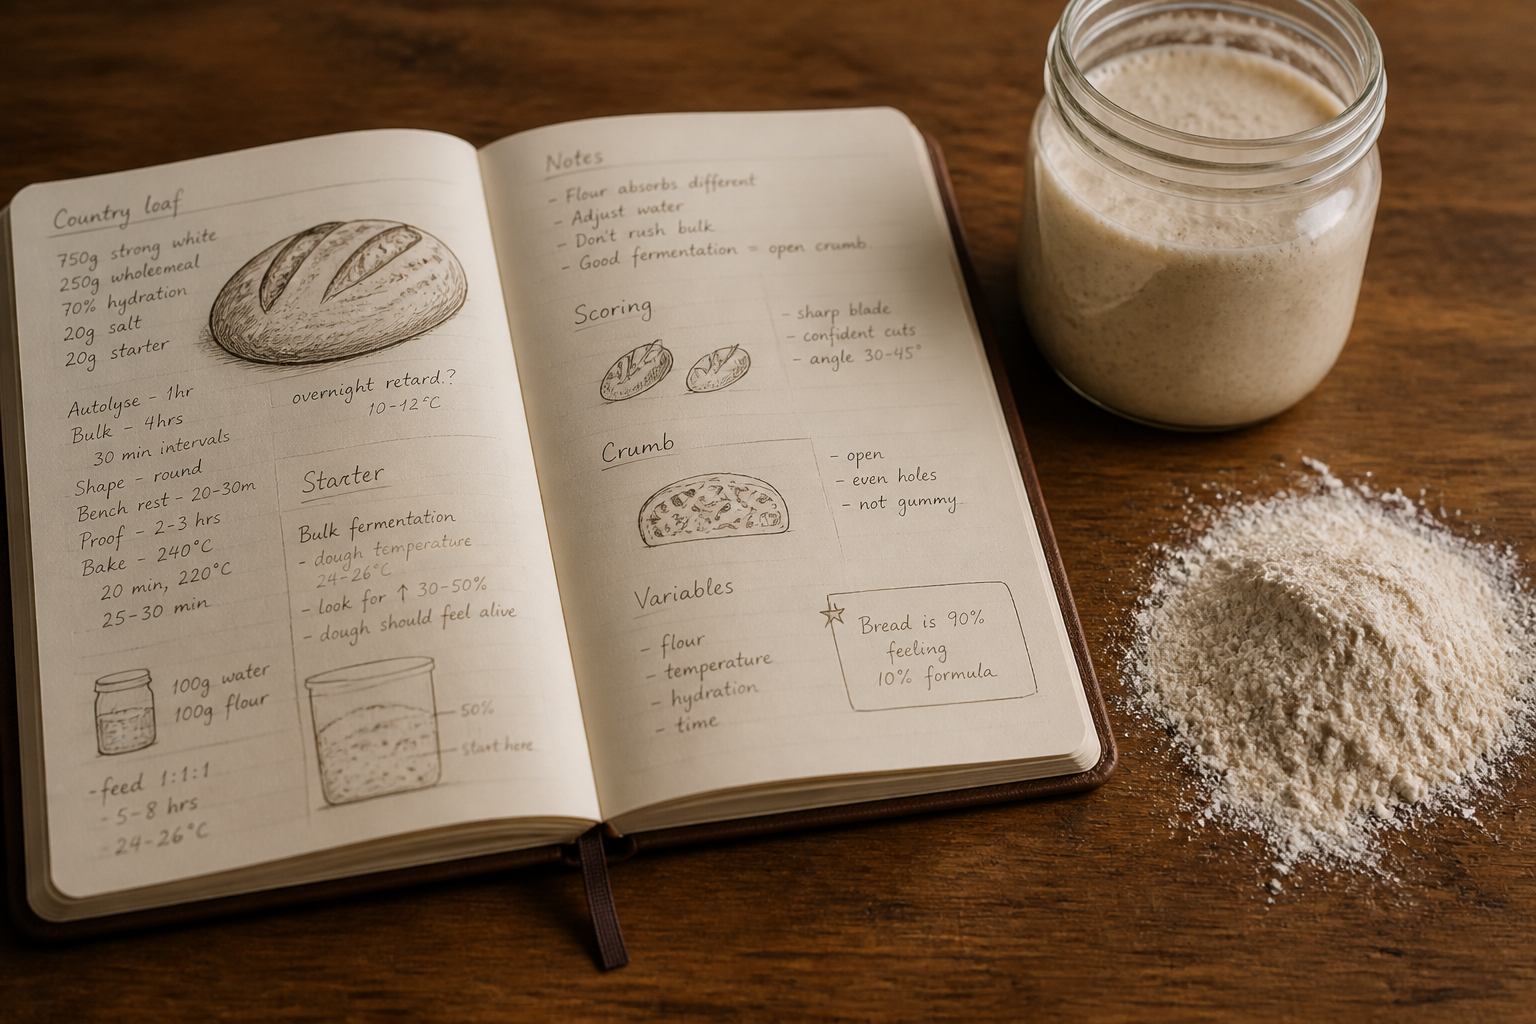 Country loaf
750g strong white
250g wholeemeal
70% hydration
20g salt
20g starter
Autolyse - 1hr
Bulk - 4hrs
30 min intervals
Shape - round
Bench rest - 20-30m
Proof - 2-3 hrs
Bake - 240°C
20 min, 220°C
25-30 min
overnight retard.?
10-12°C
100g water
100g flour
-feed 1:1:1
- 5-8 hrs
- 24-26°C
Starter
Bulk fermentation
- dough temperature
24-26°C
- look for ↑ 30-50%
- dough should feel alive
50%
start here
Notes
- Flour absorbs different
- Adjust water
- Don't rush bulk
- Good fermentation = open crumb
Scoring
- sharp blade
- confident cuts
- angle 30-45°
Crumb
- open
- even holes
- not gummy
Variables
- flour
- temperature
- hydration
- time
Bread is 90%
feeling
10% formula